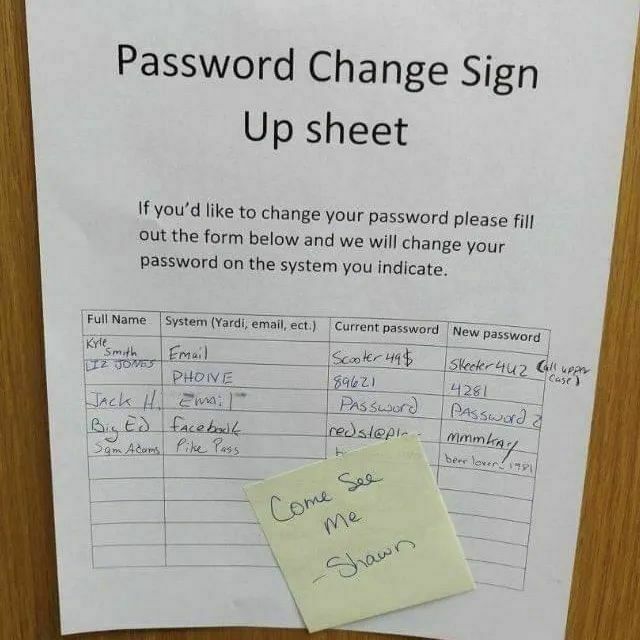 Password Change Sign
Up sheet
If you'd like to change your password please fill
out the form below and we will change your
password on the system you indicate.
Full Name System (Yardi, email, ect.) Current password New password
Kyle Smith Email Scooter 49$ Skeeter 4U2 (all upper case)
LIZ JONES PHONE 89621 4281
Jack H. Email PASSword PASSword 2
Big Ed facebook
Sam Adams Pike Pass beer lover 1981
Come See
me
- Shawn